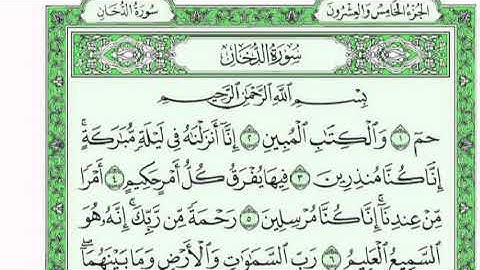 الجزء الخامس والعشرون
سورة الدخان
سُورَةُ الدُّخَانِ
بِسْمِ اللَّهِ الرَّحْمَٰنِ الرَّحِيمِ
حمٓ ١ وَالْكِتَابِ الْمُبِينِ ٢ إِنَّآ أَنزَلْنَاهُ فِي لَيْلَةٍ مُّبَارَكَةٍ ۚ
إِنَّا كُنَّا مُنذِرِينَ ٣ فِيهَا يُفْرَقُ كُلُّ أَمْرٍ حَكِيمٍ ٤ أَمْرًا
مِّنْ عِندِنَآ ۚ إِنَّا كُنَّا مُرْسِلِينَ ٥ رَحْمَةً مِّن رَّبِّكَ ۚ إِنَّهُ هُوَ
السَّمِيعُ الْعَلِيمُ ٦ رَبِّ السَّمَاوَاتِ وَالْأَرْضِ وَمَا بَيْنَهُمَا ۖ